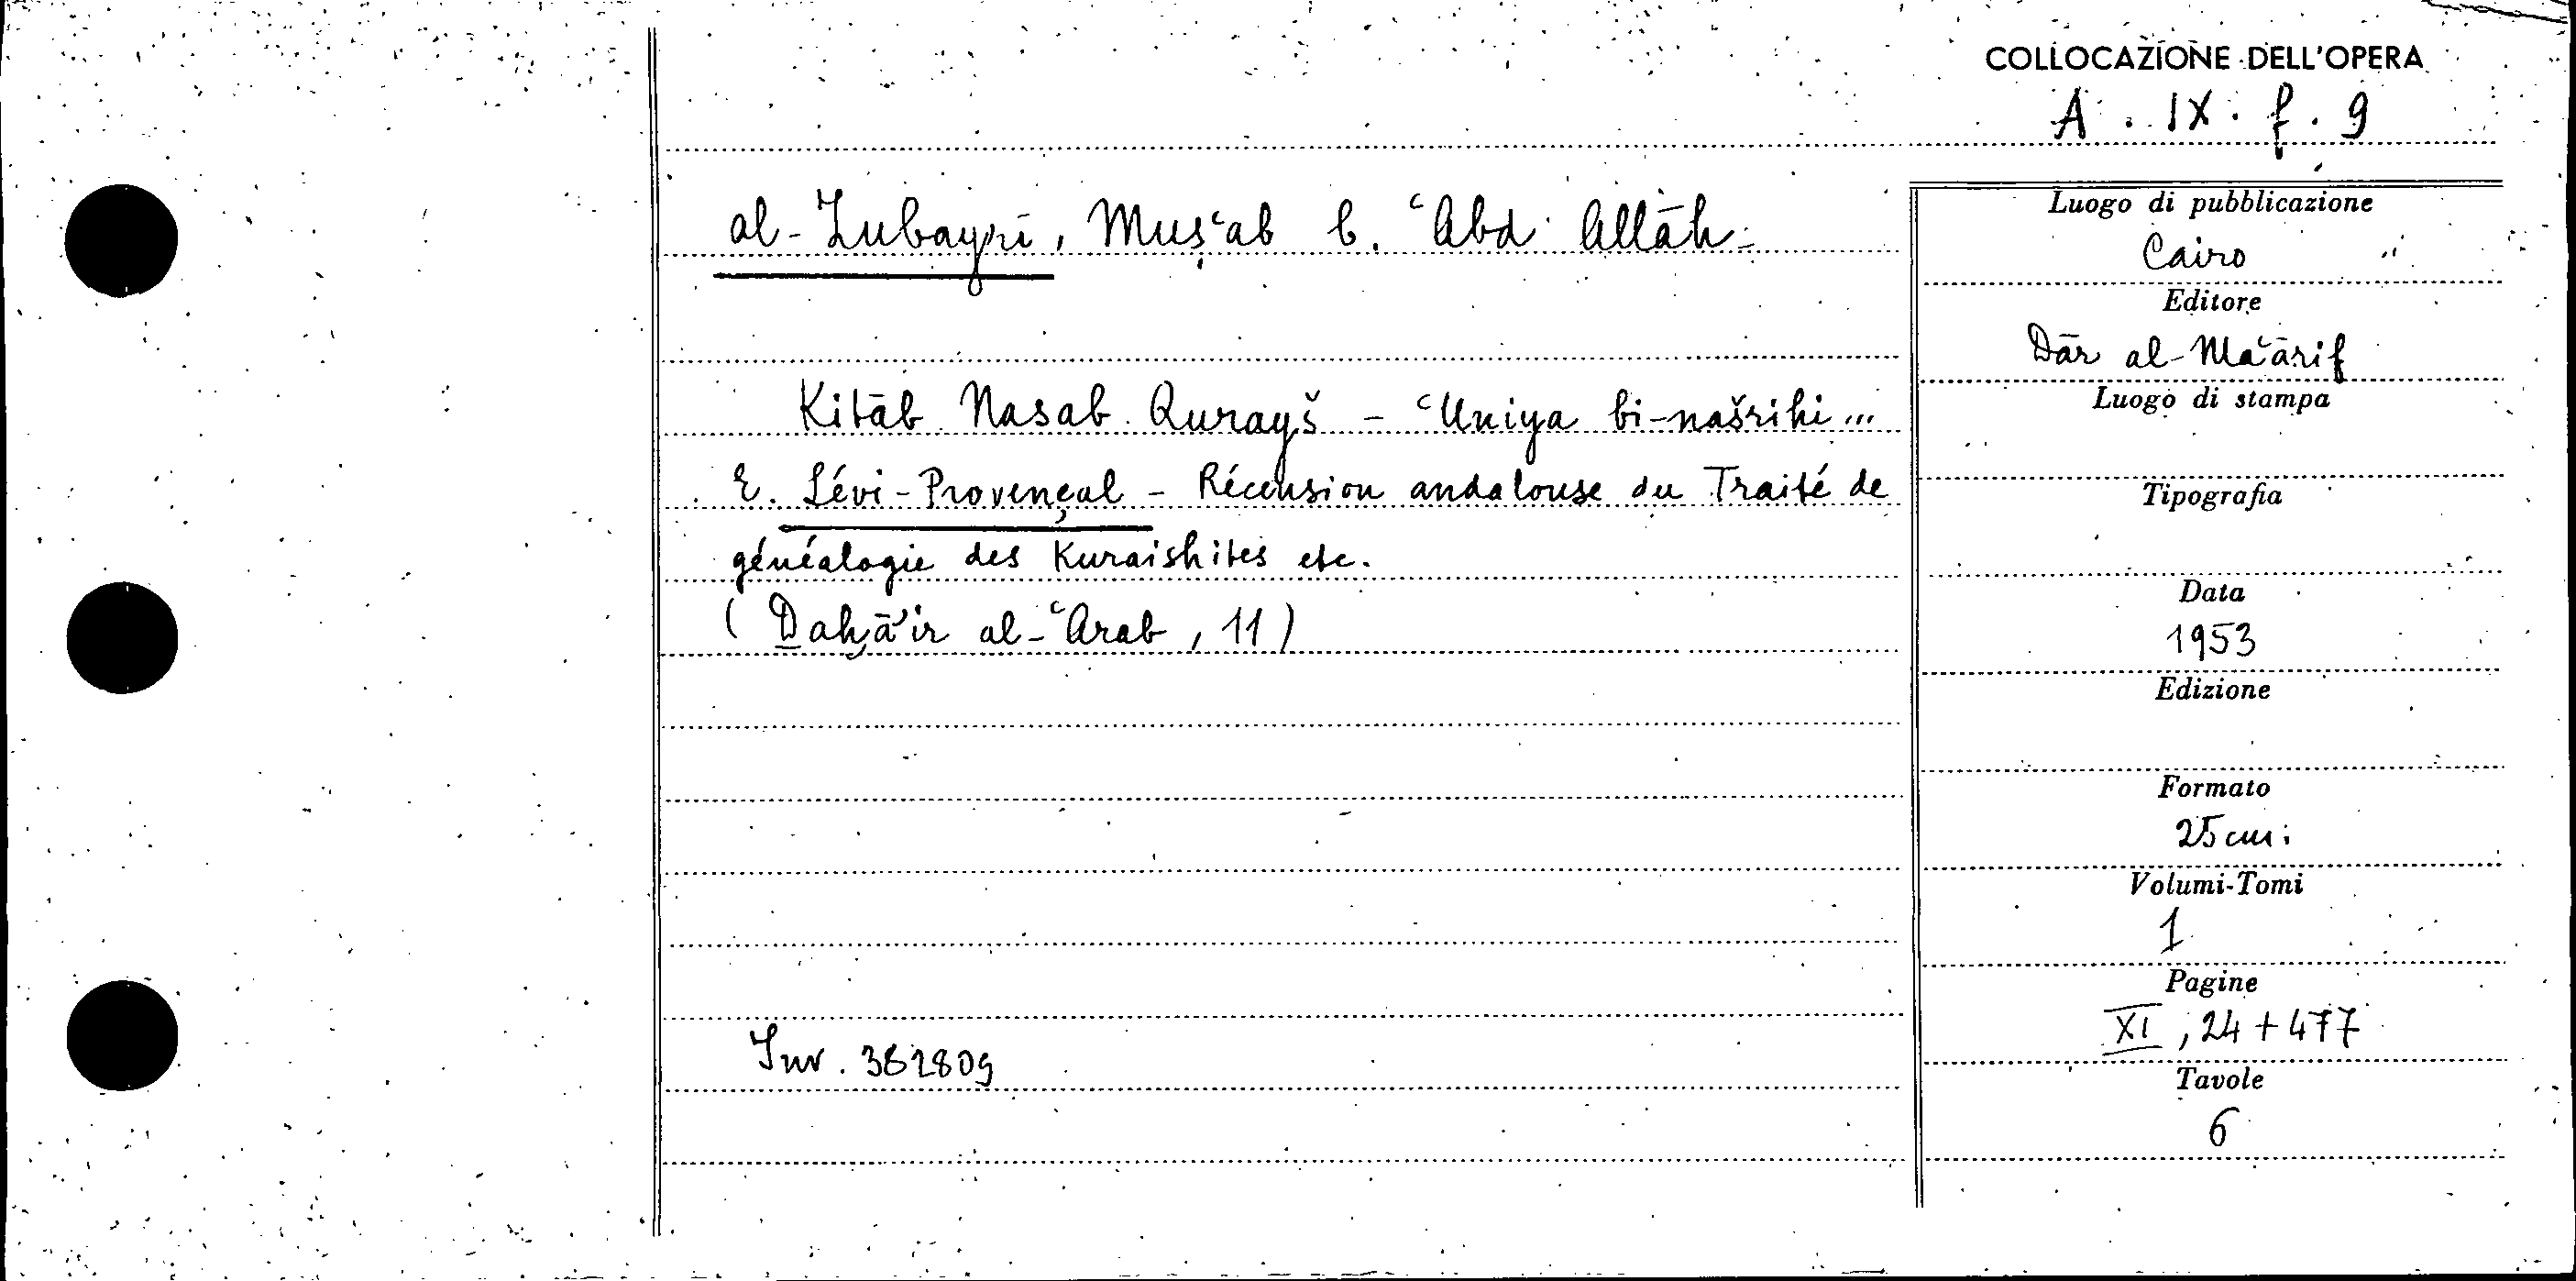 COLLOCAZIONE DELL'OPERA
A. IX. f. 9
al-Zubayrī, Muṣʿab b. ʿAbd Allāh
Kitāb Nasab Qurayš - ʿUniya bi-našrihi...
E. Lévi-Provençal - Récension andalouse du Traité de
généalogie des Kuraishites etc.
(Ḏaḫā'ir al-ʿArab, 11)
Inv. 382809
Luogo di pubblicazione
Cairo
Editore
Dār al-Maʿārif
Luogo di stampa
Tipografia
Data
1953
Edizione
Formato
25 cm.
Volumi-Tomi
1
Pagine
XI, 24 + 477
Tavole
6